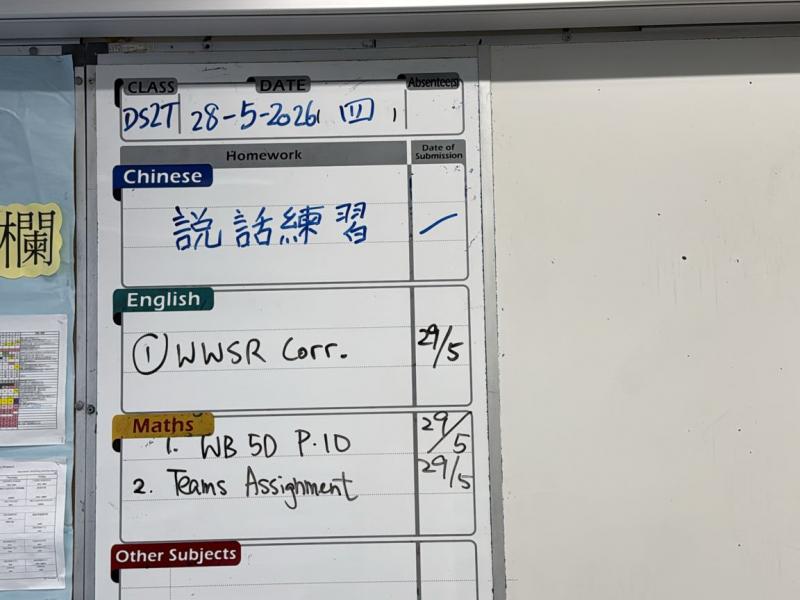 CLASS DATE Absentee(s)
DS2T 28-5-2026 (四)
Homework Date of Submission
Chinese
說話練習 一
English
① WWSR Corr. 29/5
Maths
1. WB 5D P.10 29/5
2. Teams Assignment 29/5
Other Subjects
欄